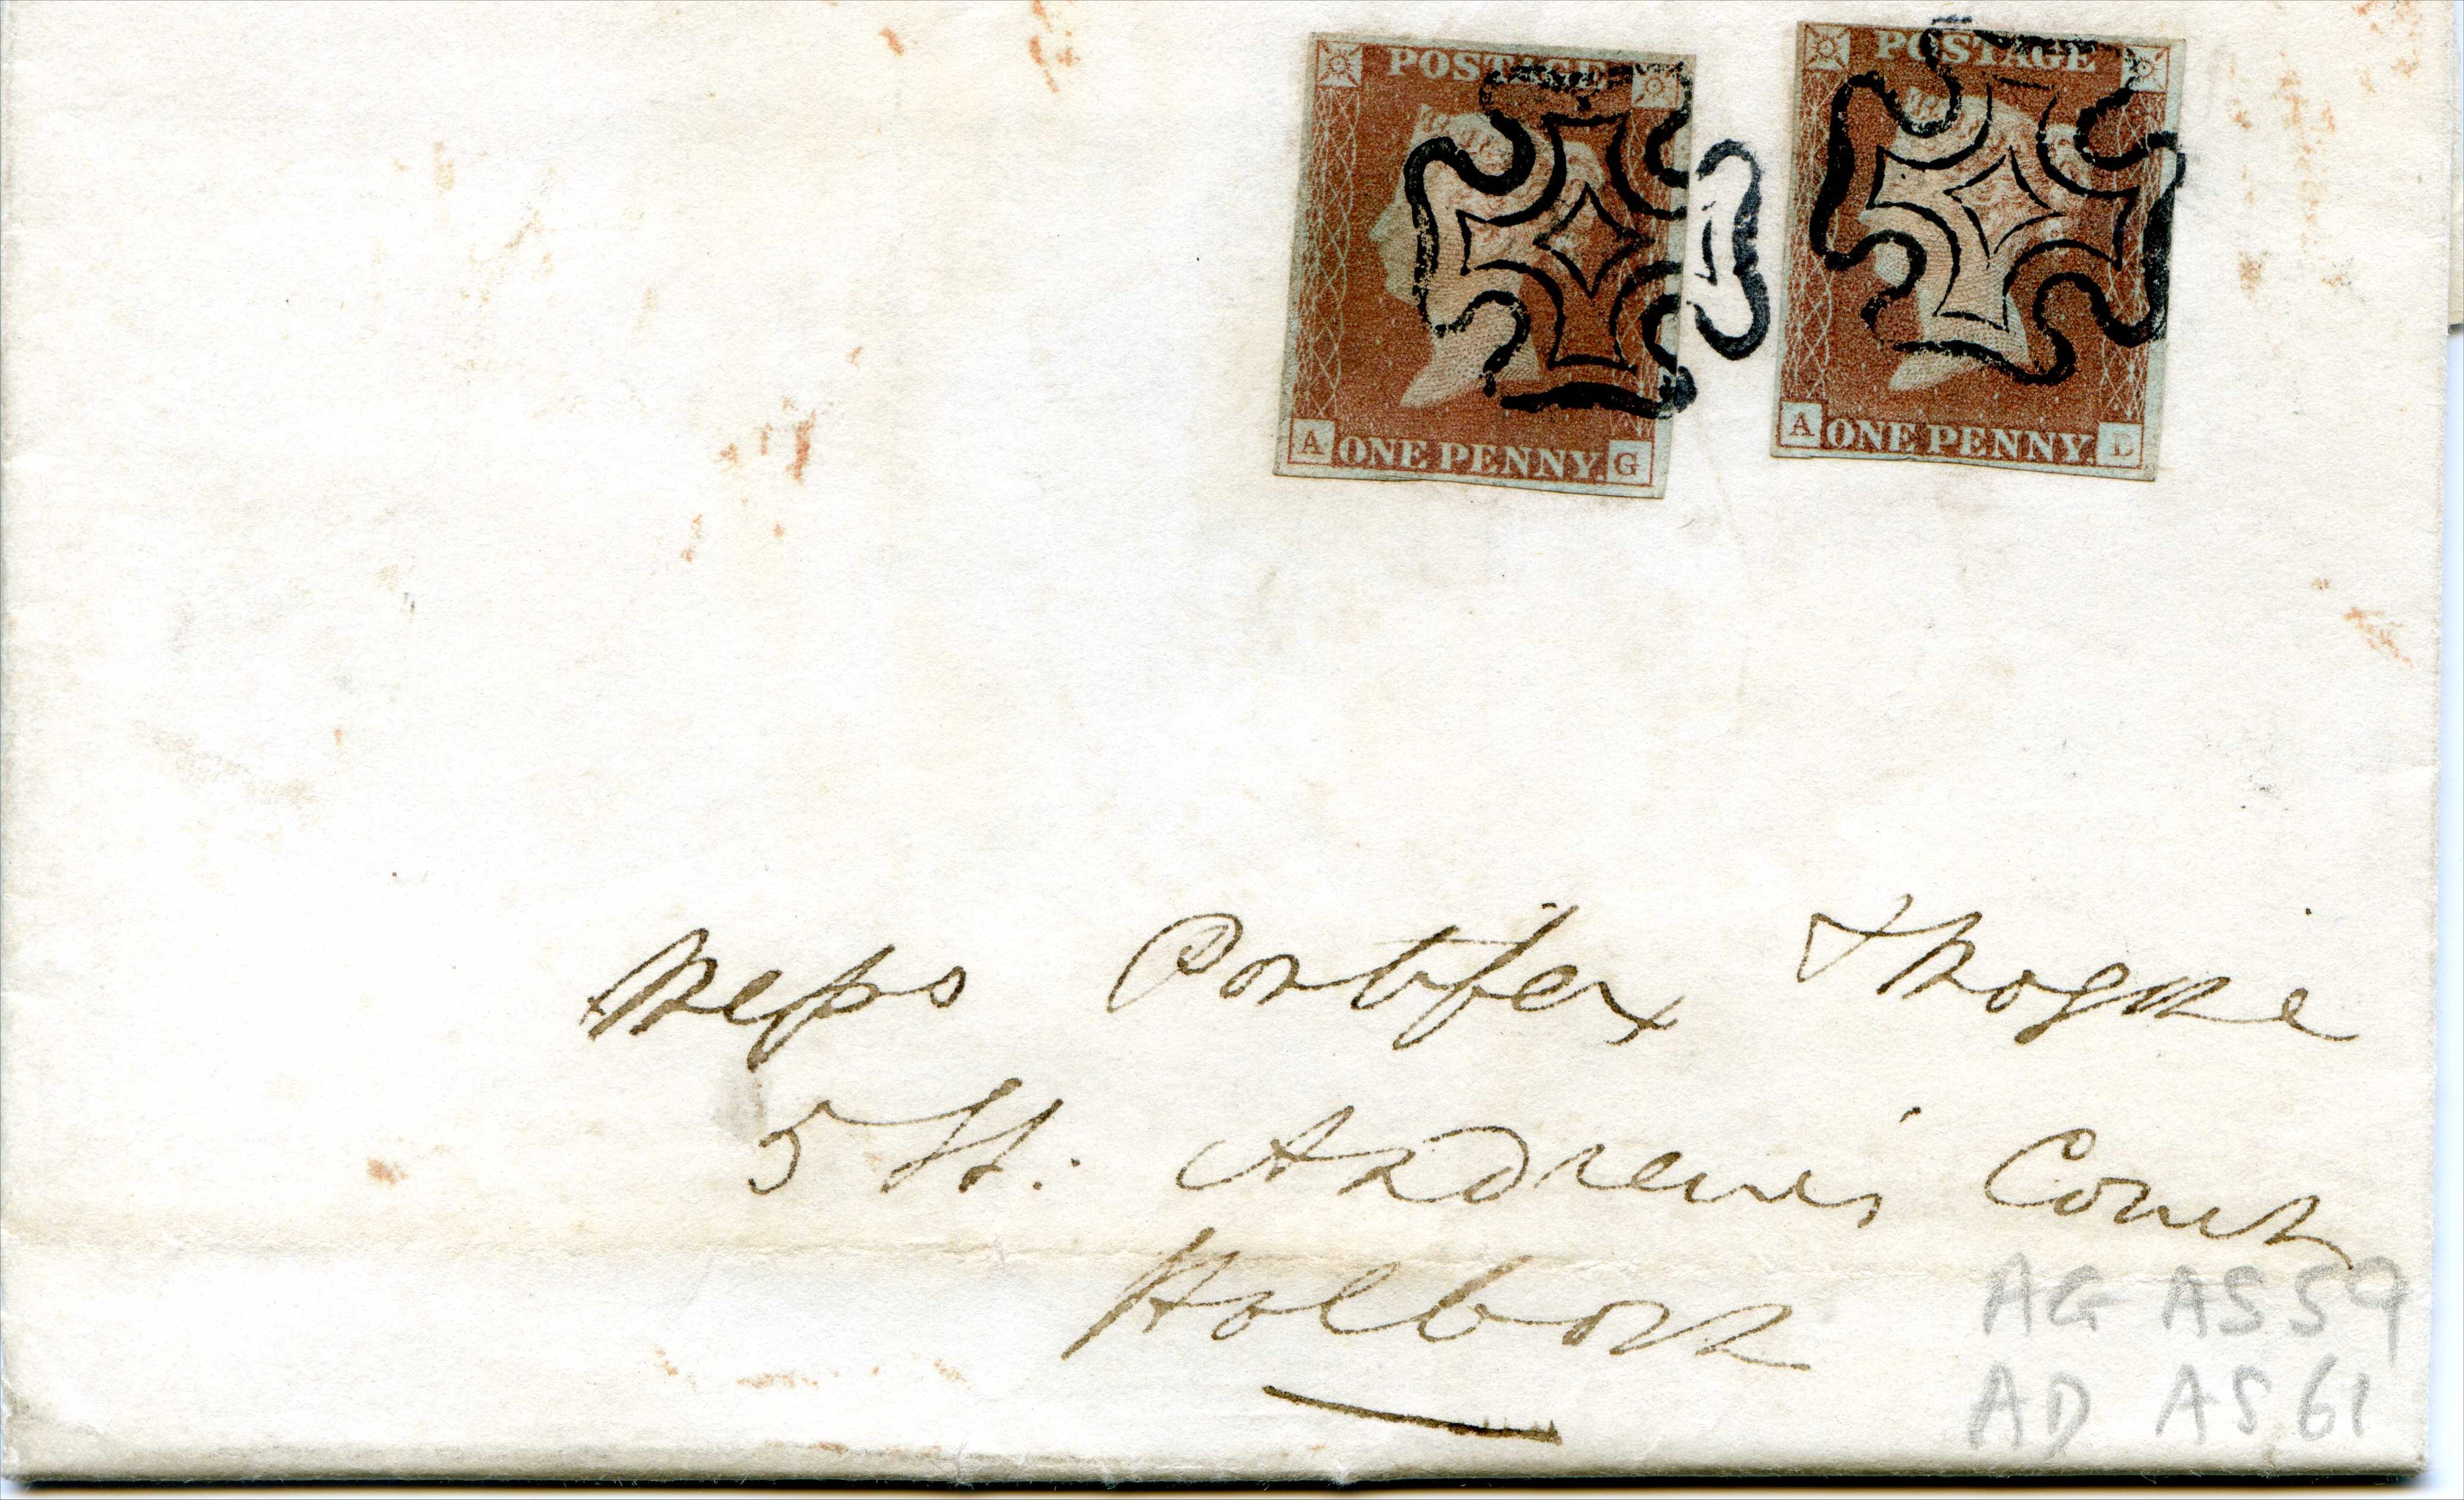 POSTAGE
A ONE PENNY. G
POSTAGE
A ONE PENNY. D
Messrs Pontifex & Moginie
5 St. Andrew's Court
Holborn
AG AS 59
AD AS 61